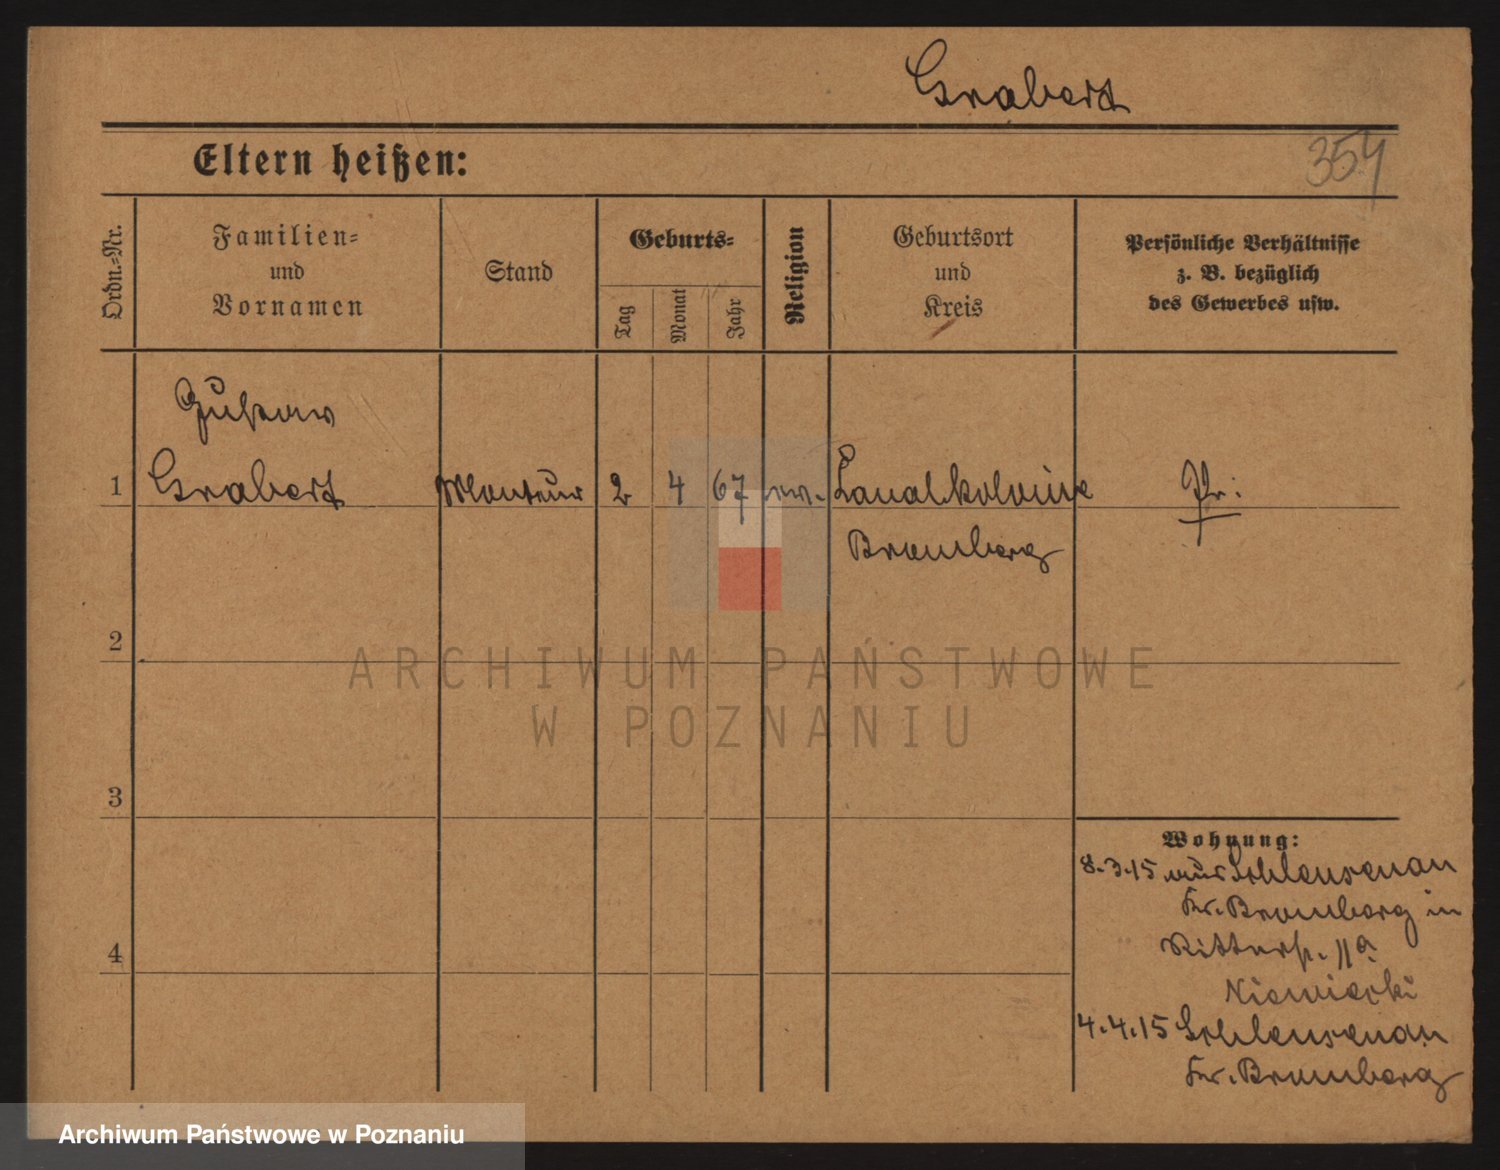 Grabert
Eltern heißen:
354
Ordn.-Nr.
Familien-
und
Vornamen
Stand
Geburts-
Tag
Monat
Jahr
Religion
Geburtsort
und
Kreis
Persönliche Verhältnisse
z. B. bezüglich
des Gewerbes usw.
Gustav
1 Grabert Monteur 2 4 67 ev. Kanalkolonie Pr:
Bromberg
2
3
4
Wohnung:
8.3.15 aus Schleusenau
Kr. Bromberg in
Ritterst. 11a
4.4.15 Schleusenau
Kr. Bromberg
ARCHIWUM PAŃSTWOWE
W POZNANIU
Archiwum Państwowe w Poznaniu